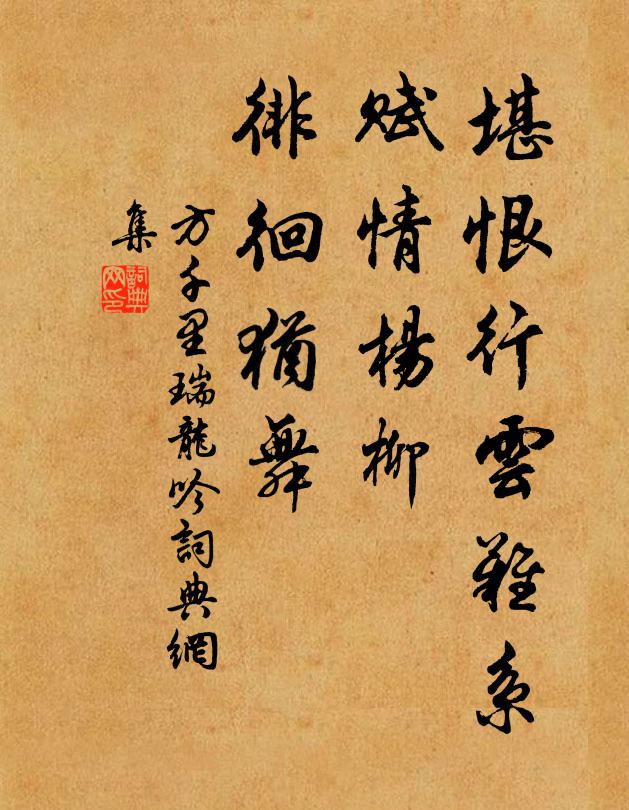 堪恨行雲難系
賦情楊柳
徘徊猶舞
方千里瑞龍吟詞典網
集
詞典
网印